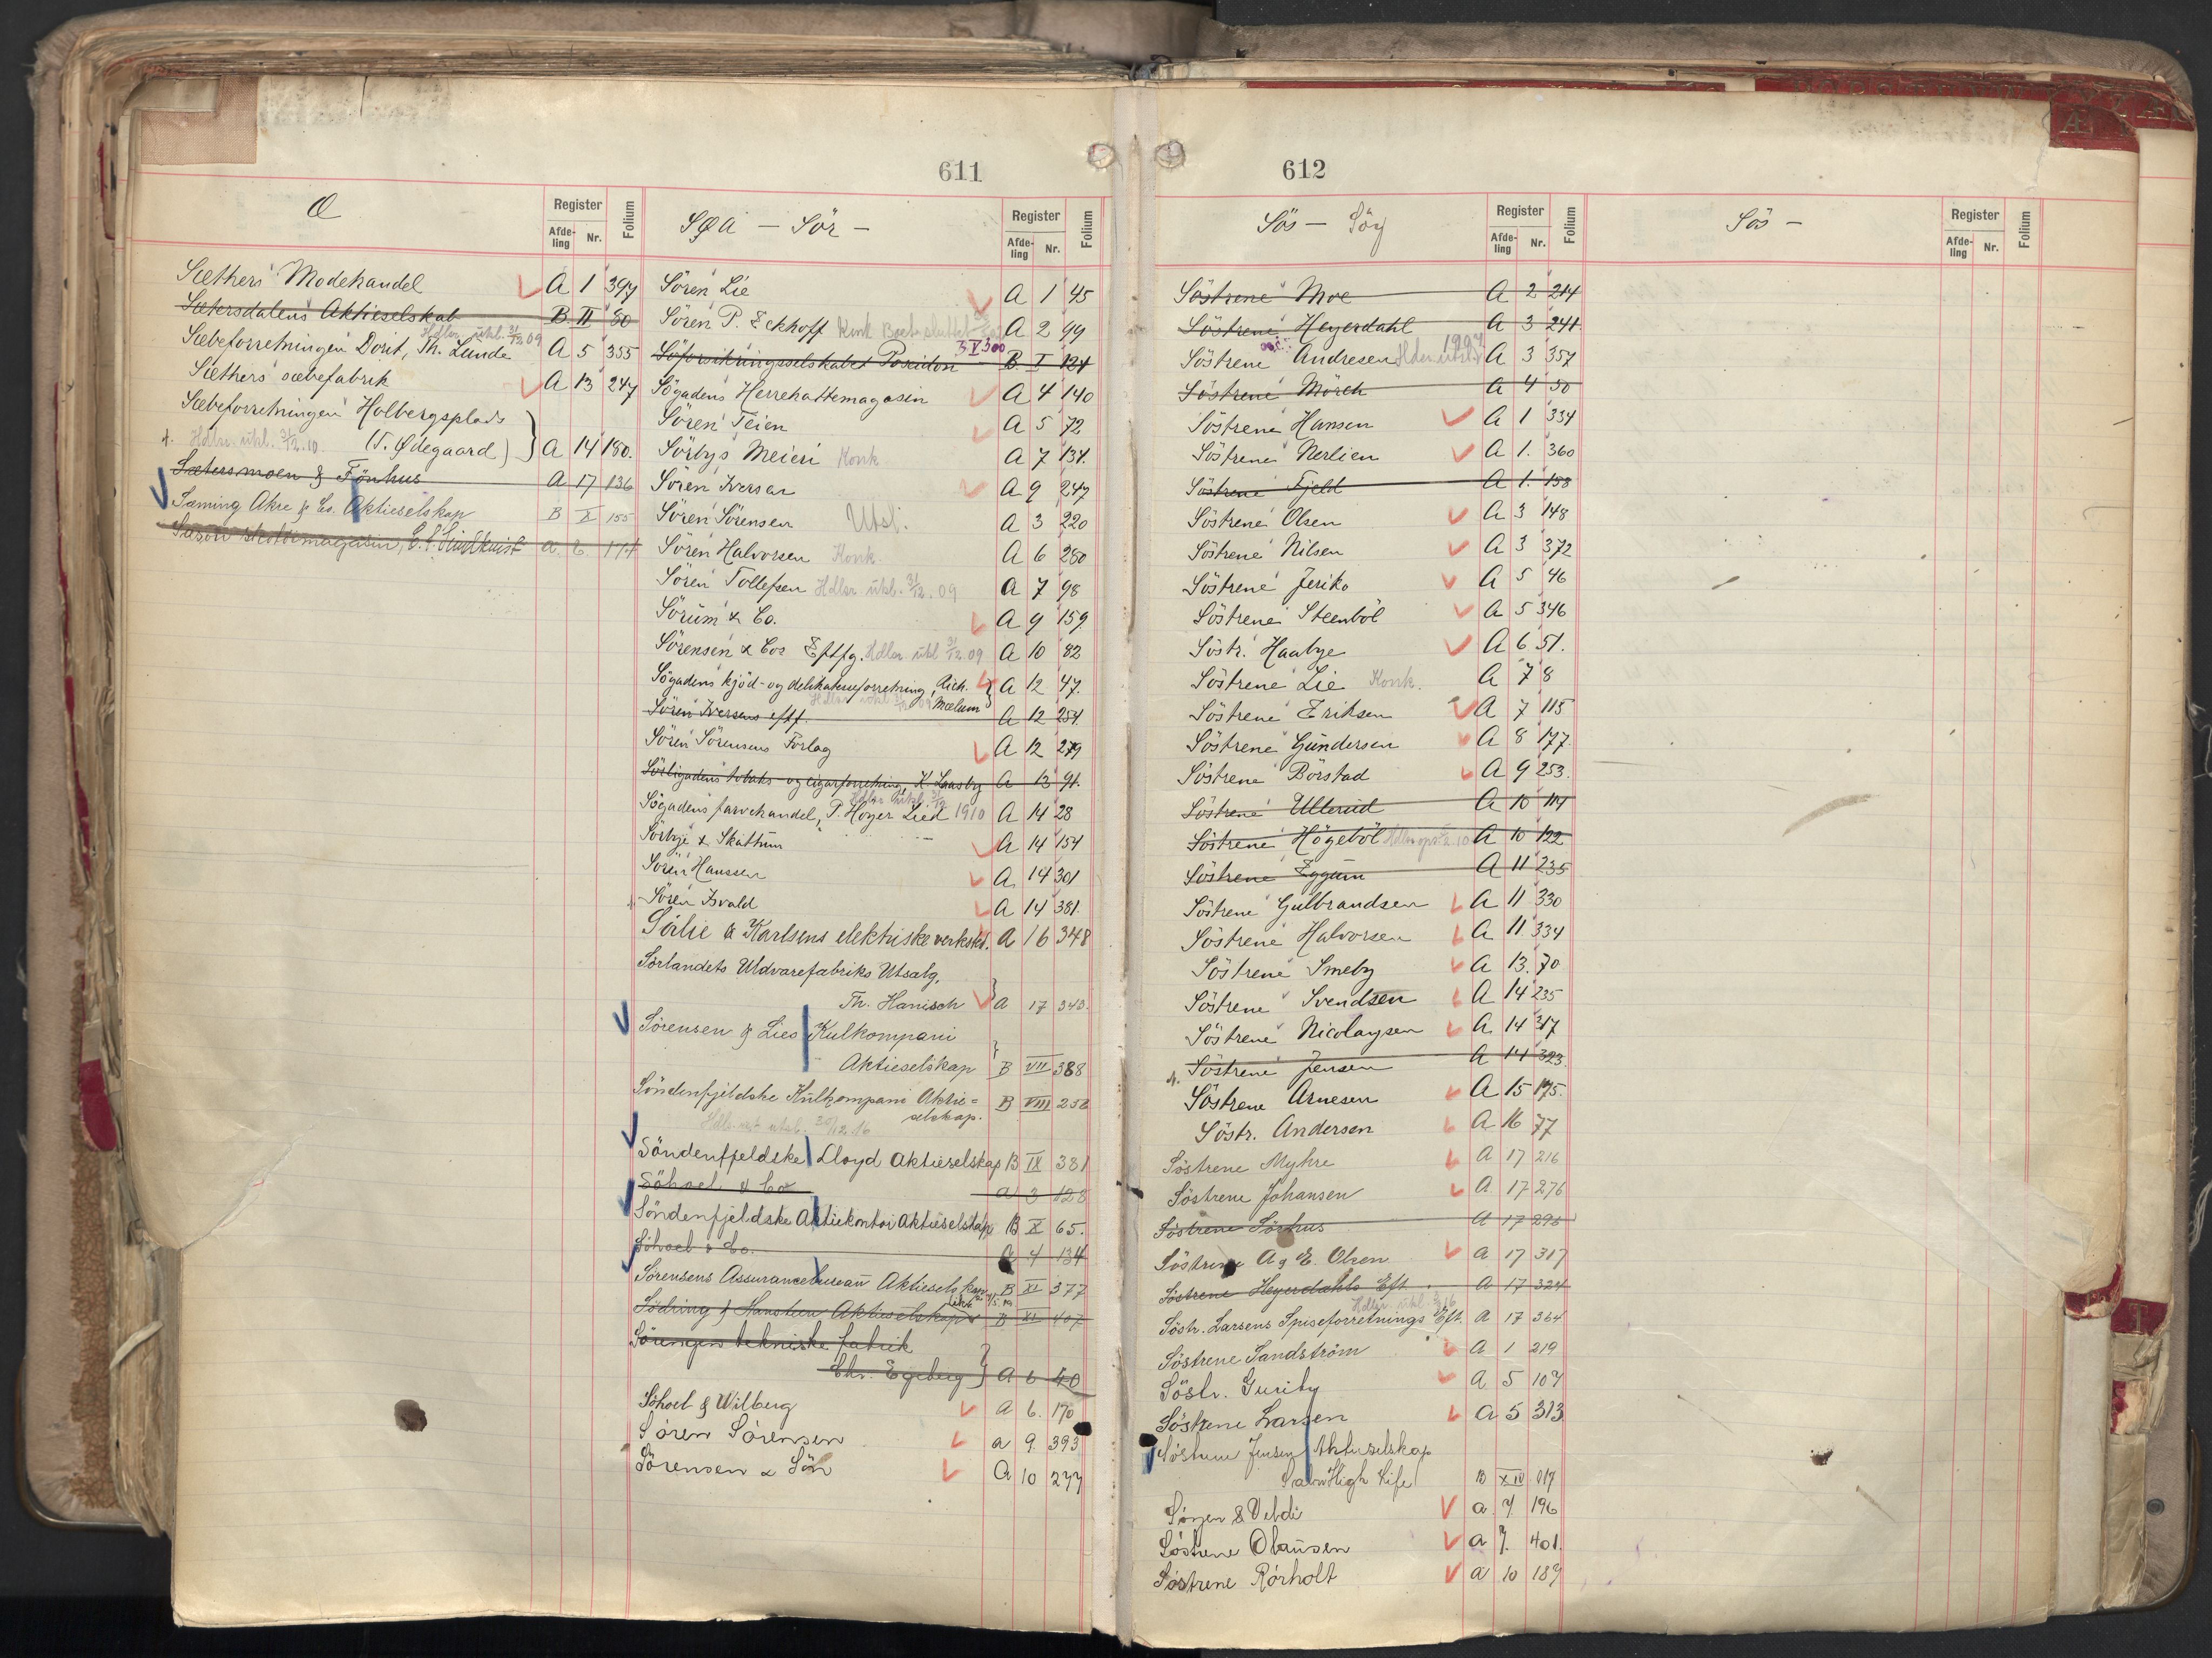 611
Æ
Register
Afde-
ling
Nr.
Folium
Sæthers Modehandel A 1 397
Sætersdalens Aktieselskab B II 80
Hdler. utkl. 31/12 09
Sæbeforretningen Dorit, Th. Lunde A 5 355
Sæthers sæbefabrik A 13 247
Sæbeforretningen Holbergsplads
Hdler. utkl. 31/12.10. (T. Ødegaard) A 14 180.
Sætersmoen & Fönhus A 17 136
Sæming Akre & Co. Aktieselskap B X 155
SØA - Sör -
Register
Afde-
ling
Nr.
Folium
Sören Lie A 1 45
Sören P. Eckhoff A 2 99
3 V 300
Söforsikringsselskabet Poseidon B I 124
Sögadens Herrehattemagasin A 4 140
Sören Teien A 5 72
Sörbys Meieri Konk A 7 134.
Sören Iversen A 9 247
Sören Sörensen Utsl. A 3 220
Sören Halvorsen Konk. A 6 280
Sören Tollefsen Hdler utkl. 31/12.09 A 7 98
Sörum & Co. A 9 159
Sörensen & Cos Eftfg. Hdler utkl 31/12.09 A 10 82
Sögadens kjöd- og delikatesseforretning, Rich. A 12 47.
Mælum
Sören Iversens eftf. A 12 254.
Sören Sörensens Forlag A 12 279
Sörligadens tobaks- og cigarforretning, K. Laasby A 13 91.
Sögadens farvehandel, P. Hoyer Lied 1910 A 14 28
Sörbye & Skattum A 14 154
Sören Hanssen A. 14 301
Sören Isvald A 14 381.
Sörlie & Karlsens elektriske verksted. A 16 348
Sörlandets Uldvarefabriks Utsalg,
Th. Hanisch A 17 343.
Sörensen & Lies Kulkompani
Aktieselskap B VII 388
Söndenfjeldske Kulkompani Aktie= B VIII 258
selskap.
Söndenfjeldske Lloyd Aktieselskap B IX 381
Söhoel & Co a 3 128
Söndenfjeldske Aktiekontor Aktieselskap B X 65.
Söhoel & Co. a 4 134
Sörensens Assurancebureau Aktieselskap B XI 377
Södring & Hanstien Aktieselskap B XI 407
Sörengens tekniske fabrik
Chr. Egeberg A 6 40
Söhoel & Wilberg A 6. 170
Sören Sörensen a 9. 393
Sörensen & Sön A 10 277
612
Sös - Söy
Register
Afde-
ling
Nr.
Folium
Söstrene Moe A 2 214
Söstrene Heyerdahl A 3 241
1907
Söstrene Andresen A 3 357
Söstrene Mörch A 4 50
Söstrene Hansen A 1 334
Söstrene Nerlien A 1. 360
Söstrene Fjeld A 1. 158
Söstrene Olsen A 3 148
Söstrene Nilsen A 3 372
Söstrene Jeriko A 5 46
Söstrene Steenböl A 5 346
Söstr. Haabye A 6 51.
Söstrene Lie Konk. A 7 8
Söstrene Eriksen A 7 115
Söstrene Gundersen A 8 177.
Söstrene Börstad A 9 253.
Söstrene Ullerud A 10 114
Söstrene Högeböl A 10 122
Söstrene Eggum A 11 235
Söstrene Gulbrandsen A 11 330
Söstrene Halvorsen A 11 334
Söstrene Smeby A 13. 70
Söstrene Svendsen A 14 235
Söstrene Nicolaysen A 14 317
Söstrene Jensen A 14 323
Söstrene Arnesen A 15 175.
Söstr. Andersen A 16 77
Söstrene Myhre A 17 216
Söstrene Johansen A 17 276
Söstrene Sörhus A 17 296
Söstrene A & E. Olsen A 17 317
Söstrene Heyerdahls Eft. A 17 324
Söstr. Larsens Spiseforretnings Eft. A 17 364
Söstrene Sandström A 1 219
Söstr. Guriby A 5 107
Söstrene Larsen A 5 313
Söstrene Jensen Aktieselskap
Salon High Life B XIV 017
Söyen & Vebdi a 7 196
Söstrene Olaussen a 7. 401.
Söstrene Rörholt a 10 187
Sös -
Register
Afde-
ling
Nr.
Folium